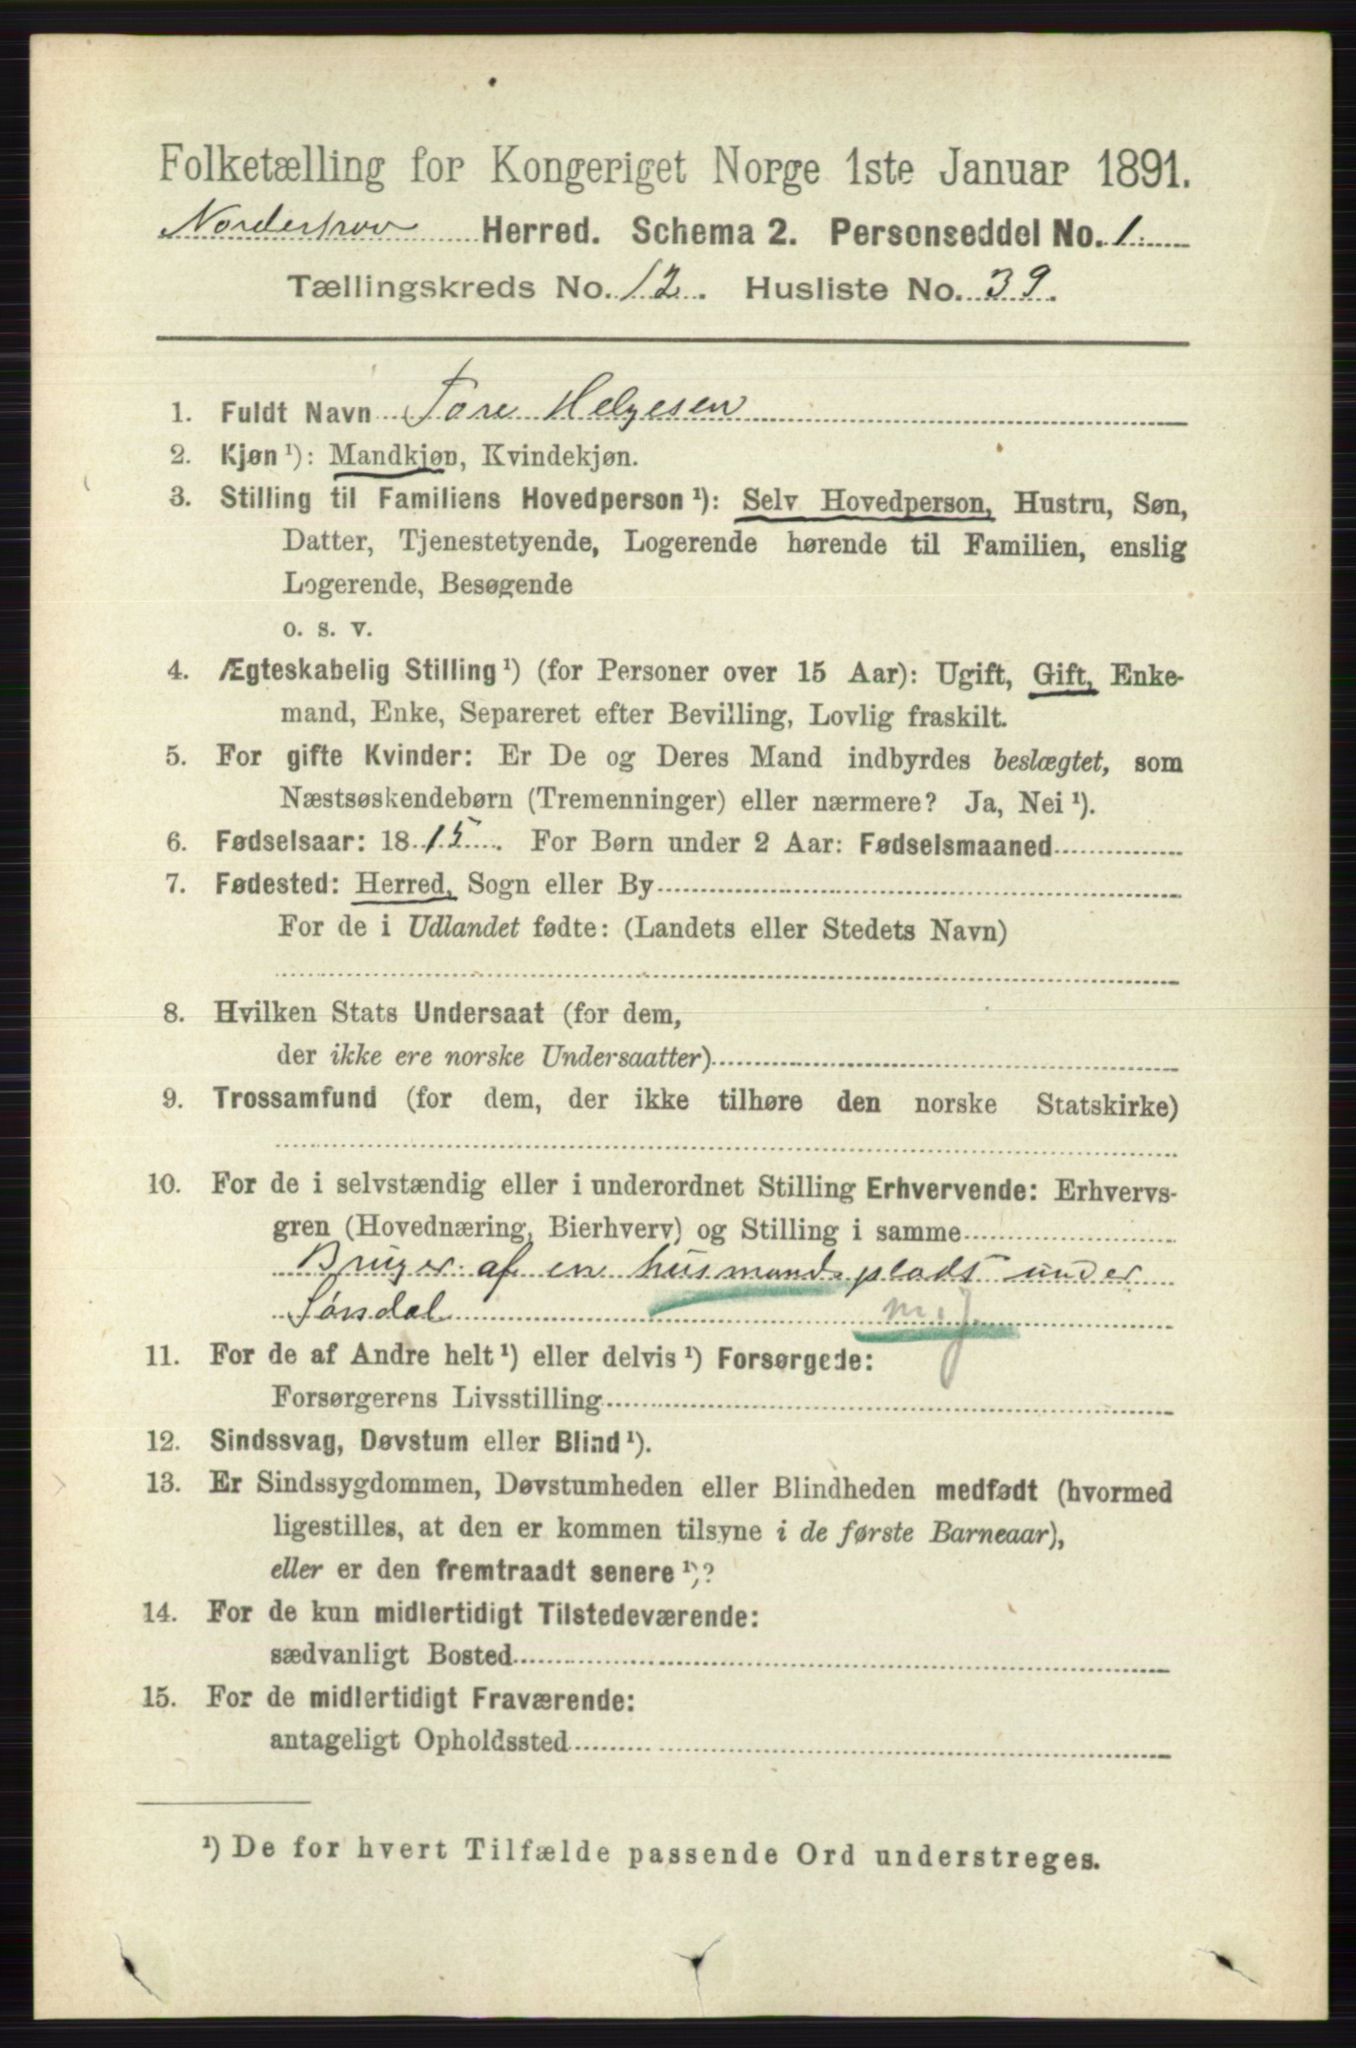 Folketælling for Kongeriget Norge 1ste Januar 1891.
Norderhov Herred. Schema 2. Personseddel No. 1
Tællingskreds No. 12. Husliste No. 39.
1. Fuldt Navn Tore Helgesen
2. Kjøn ¹): Mandkjøn, Kvindekjøn.
3. Stilling til Familiens Hovedperson ¹): Selv Hovedperson, Hustru, Søn,
Datter, Tjenestetyende, Logerende hørende til Familien, enslig
Logerende, Besøgende
o. s. v.
4. Ægteskabelig Stilling ¹) (for Personer over 15 Aar): Ugift, Gift, Enke-
mand, Enke, Separeret efter Bevilling, Lovlig fraskilt.
5. For gifte Kvinder: Er De og Deres Mand indbyrdes beslægtet, som
Næstsøskendebørn (Tremenninger) eller nærmere? Ja, Nei ¹).
6. Fødselsaar: 1815. For Børn under 2 Aar: Fødselsmaaned
7. Fødested: Herred, Sogn eller By
For de i Udlandet fødte: (Landets eller Stedets Navn)
8. Hvilken Stats Undersaat (for dem,
der ikke ere norske Undersaatter)
9. Trossamfund (for dem, der ikke tilhøre den norske Statskirke)
10. For de i selvstændig eller i underordnet Stilling Erhvervende: Erhvervs-
gren (Hovednæring, Bierhverv) og Stilling i samme
Bruger af en husmandsplads under
Sørsdal m. J.
11. For de af Andre helt ¹) eller delvis ¹) Forsørgede:
Forsørgerens Livsstilling
12. Sindssvag, Døvstum eller Blind ¹).
13. Er Sindssygdommen, Døvstumheden eller Blindheden medfødt (hvormed
ligestilles, at den er kommen tilsyne i de første Barneaar),
eller er den fremtraadt senere ¹)?
14. For de kun midlertidigt Tilstedeværende:
sædvanligt Bosted
15. For de midlertidigt Fraværende:
antageligt Opholdssted
¹) De for hvert Tilfælde passende Ord understreges.